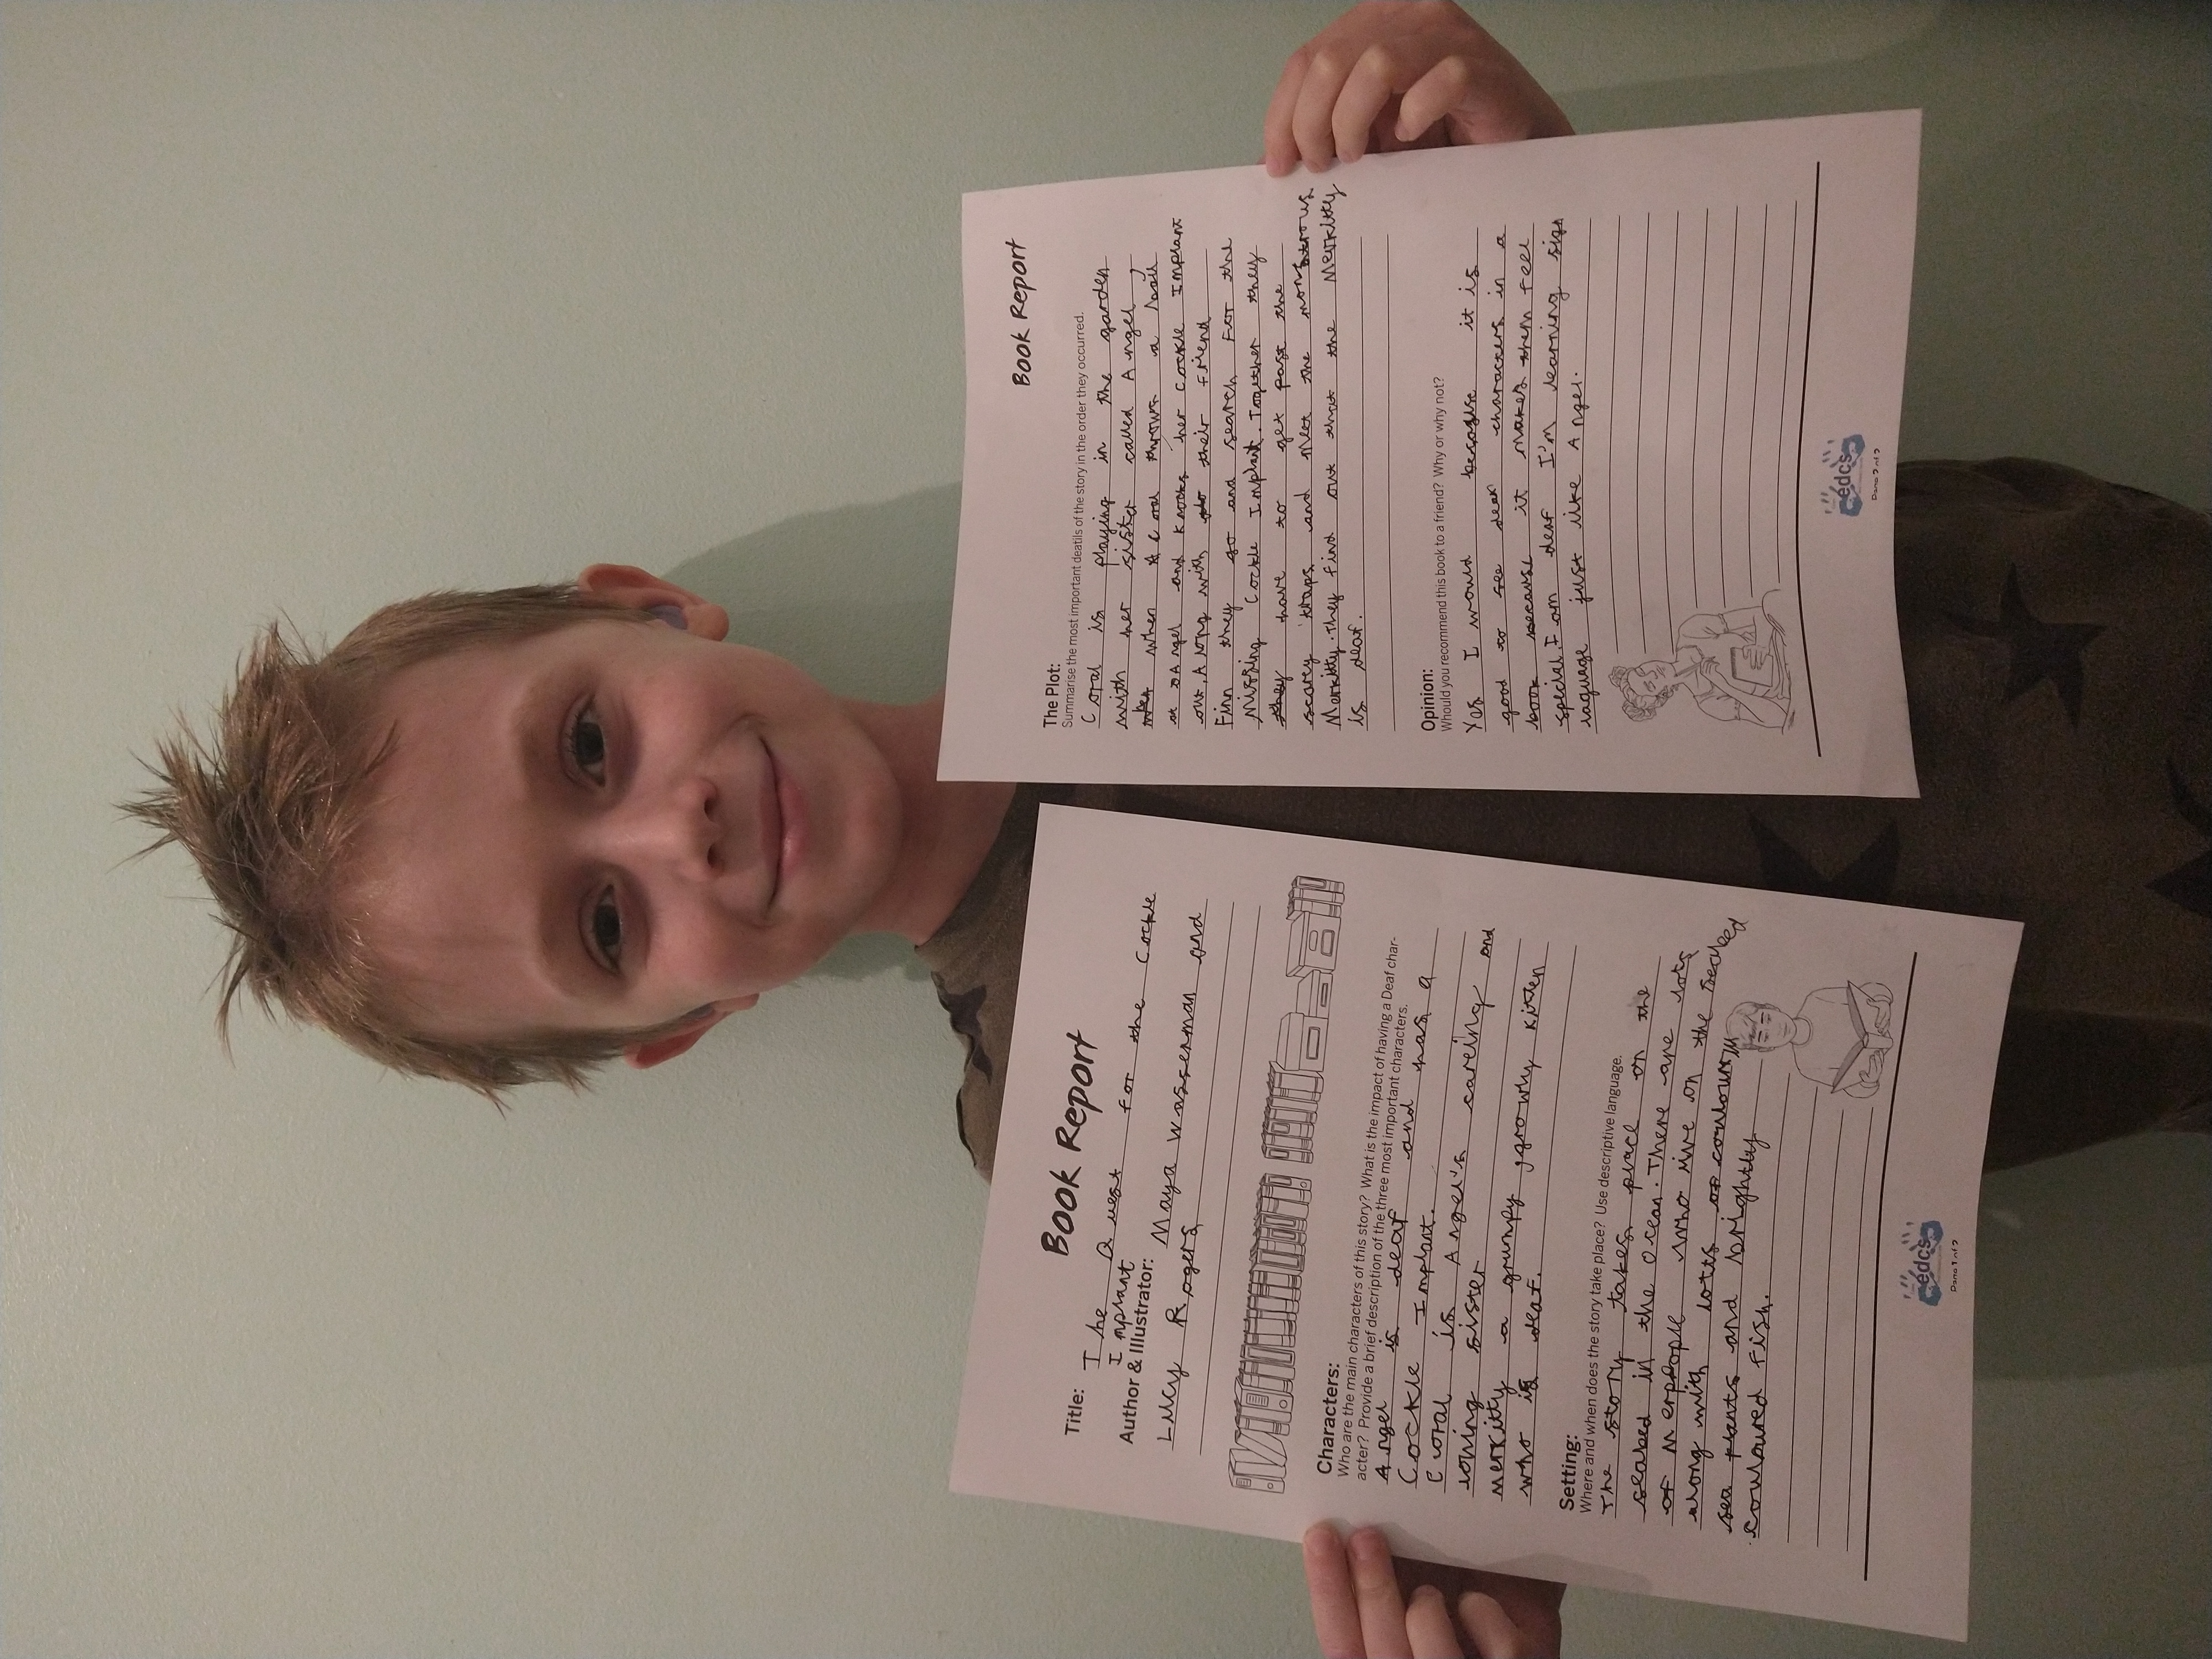 Book Report
Title: The Quest for the Cockle
Implant
Author & Illustrator:
Maya Wasserman and
Lucy Rogers
Characters:
Who are the main characters of this story? What is the impact of having a Deaf char-
acter? Provide a brief description of the three most important characters.
Angel is deaf and has a
Cockle Implant.
Coral is Angel's careing and
loving sister
merkitty a grumpy ,growly kitten
who is deaf.
Setting:
Where and when does the story take place? Use descriptive language.
The story takes place on the
seabed in the Ocean. There are lots
of merpople who live on the seabed
along with lotts of coulourful
sea plants and brightly
couloured fish.
edcs
Page 1 of 2
Book Report
The Plot:
Summarise the most important deatils of the story in the order they occurred.
Coral is playing in the garden
with her sister called Angel
when Coral throws a ball
at Angel and knocks her Cockle Implant
out. Along with their friend
Fin they go and search for the
missing Cockle Implant. Together they
they have to get past the
scary traps and meet the monstrous
Merkitty. They find out that the Merkitty
is deaf.
Opinion:
Whould you recommend this book to a friend? Why or why not?
Yes I would because it is
good to see deaf characters in a
book because it makes them feel
special. I am deaf I'm learning sign
laguage just like Angel.
edcs
Page 2 of 2